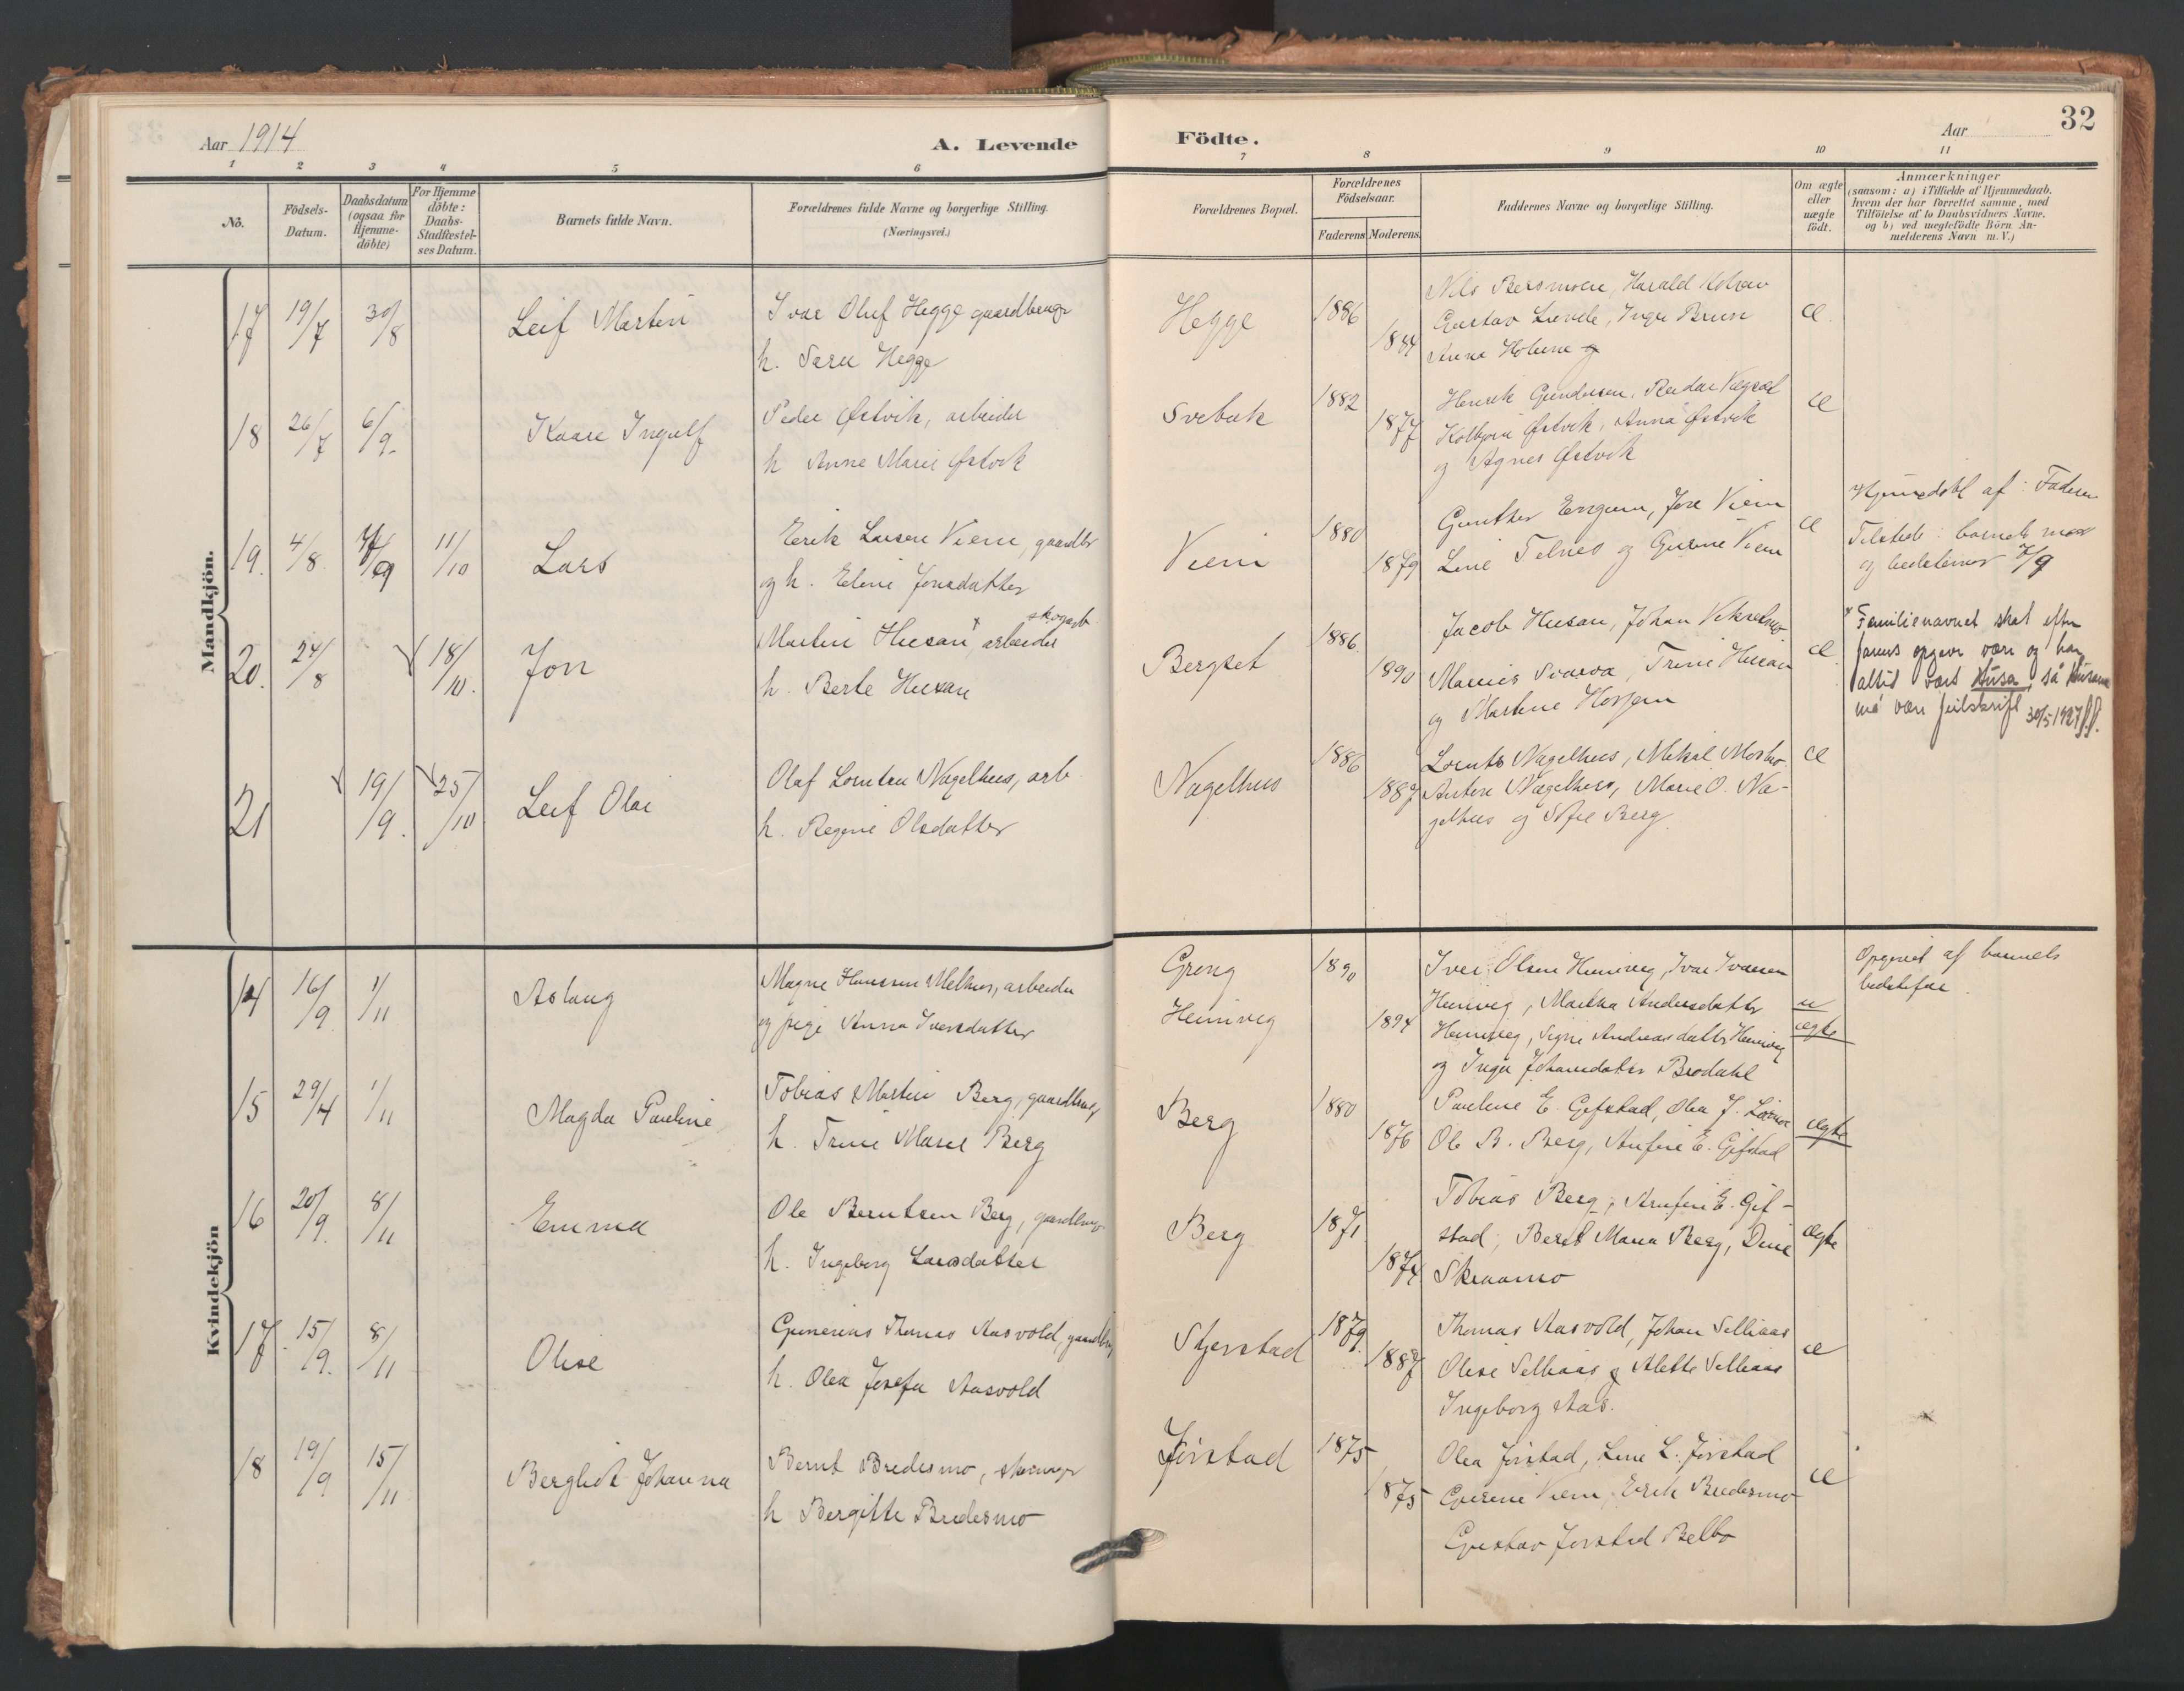 Aar 1914
A. Levende
Födte.
Aar
32
1 2 3 4 5 6 7 8 9 10 11
Nö.
Födsels-
Datum.
Daabsdatum
(ogsaa for
Hjemme-
döbte)
For Hjemme
döbte:
Daabs-
Stadfæstel-
ses Datum.
Barnets fulde Navn.
Forældrenes fulde Navne og borgerlige Stilling.
(Næringsvei.)
Forældrenes Bopæl.
Forældrenes
Födselsaar.
Faderens Moderens
Faddernes Navne og borgerlige Stilling.
Om ægte
eller
uægte
födt.
Anmærkninger
(saasom: a) i Tilfælde af Hjemmedaab,
hvem der har forrettet samme, med
Tilföielse af to Daabsvidners Navne.
og b) ved uægtefödte Börn An-
melderens Navn m. V.)
Mandkjön.
17 19/7 30/8 Leif Martin
Ivar Oluf Hegge gaardbruger
h. Sara Hegge
Hegge 1886 1884
Nils Bersmoen, Harald
Gustav, Inga Brun
Anna Holmen og
æ.
18 26/7 6/9. Kaare Ingulf
Peder Østvik, arbeider
h Anne Marie Østvik
Svebak 1882 1877
Henrik Gundersen, Reidar
Kolbjørn Østvik, Anna Østvik
og Agnes Østvik
æ
19. 4/8 7/9 11/10 Lars
Erik Larsen Viem gaardbr
og h. Eline Jonsdatter
Viem 1880 1879
Gunther, Jon Viem
Line Telnes og Gurine Viem
æ
Hjemmedøbt af: Faderen
Tilstede: barnets mor
og bedstemor 7/9
20. 24/8 18/10. Jon
skogarb
Martin Husan x arbeider
h. Berte Husan
Bergset 1886 1890
Jacob Husan, Johan
Marius Svarva, Trine Husan
og Martine
æ
x Familienavnet skal efter
farens opgave være og har
altid vært Husa, så Husan
må være feilskrift 30/5 1927
21 19/9. 25/10 Leif Olai
Olaf Lorntsen Nagelhus, arb
h. Regine Olsdatter
Nagelhus 1886 1887
Lornts Nagelhus, Mikal Mosmo
Anton Nagelhus, Marie O. Na-
gelhus og Sofie Berg.
æ
Kvindekjön
14 16/9 1/11 Aslaug
Magne Hansen Melhus, arbeider
og pige Anna Iversdatter
Grong
Heimveg
1890 1894
Iver Olsen Heimveg, Ivar Iversen
Heimveg, Martha Andersdatter
Heimveg, Signe Andreasdatter Heimveg
og Inga Johansdatter Brodahl
u
ægte
Opgivet af barnets
bedstefar
15 29/4 1/11 Magda Pauline
Tobias Martin Berg, gaardbrug
h. Trine Marie Berg
Berg 1880 1876
Pauline E. Gifstad, Olea J.
Ole B. Berg, Anfin E. Gifstad
ægte
16 20/9. 8/11 Emma
Ole Berntsen Berg, gaardbrug
h. Ingeborg Larsdatter
Berg 1871 1874
Tobias Berg, Anfin E. Gif-
stad, Berit Maria Berg, Dina
Skraamo
ægte
17. 15/9. 8/11 Olise
Gunerius Thomas Aasvold, gaardbrug
h. Olea Josefa Aasvold
Stjerstad 1879. 1887
Thomas Aasvold, Johan Selliaas
Olise Selliaas og Alette Selliaas
Ingeborg Aas.
æ
18 19/9 15/11 Bergliot Johanna
Bernt Bredesmo,
h Bergitte Bredesmo
Jørstad 1875 1875
Olea Jørstad, Line L. Jørstad
Gurine Viem, Erik Bredesmo
Gustav Jørstad Belbo
æ